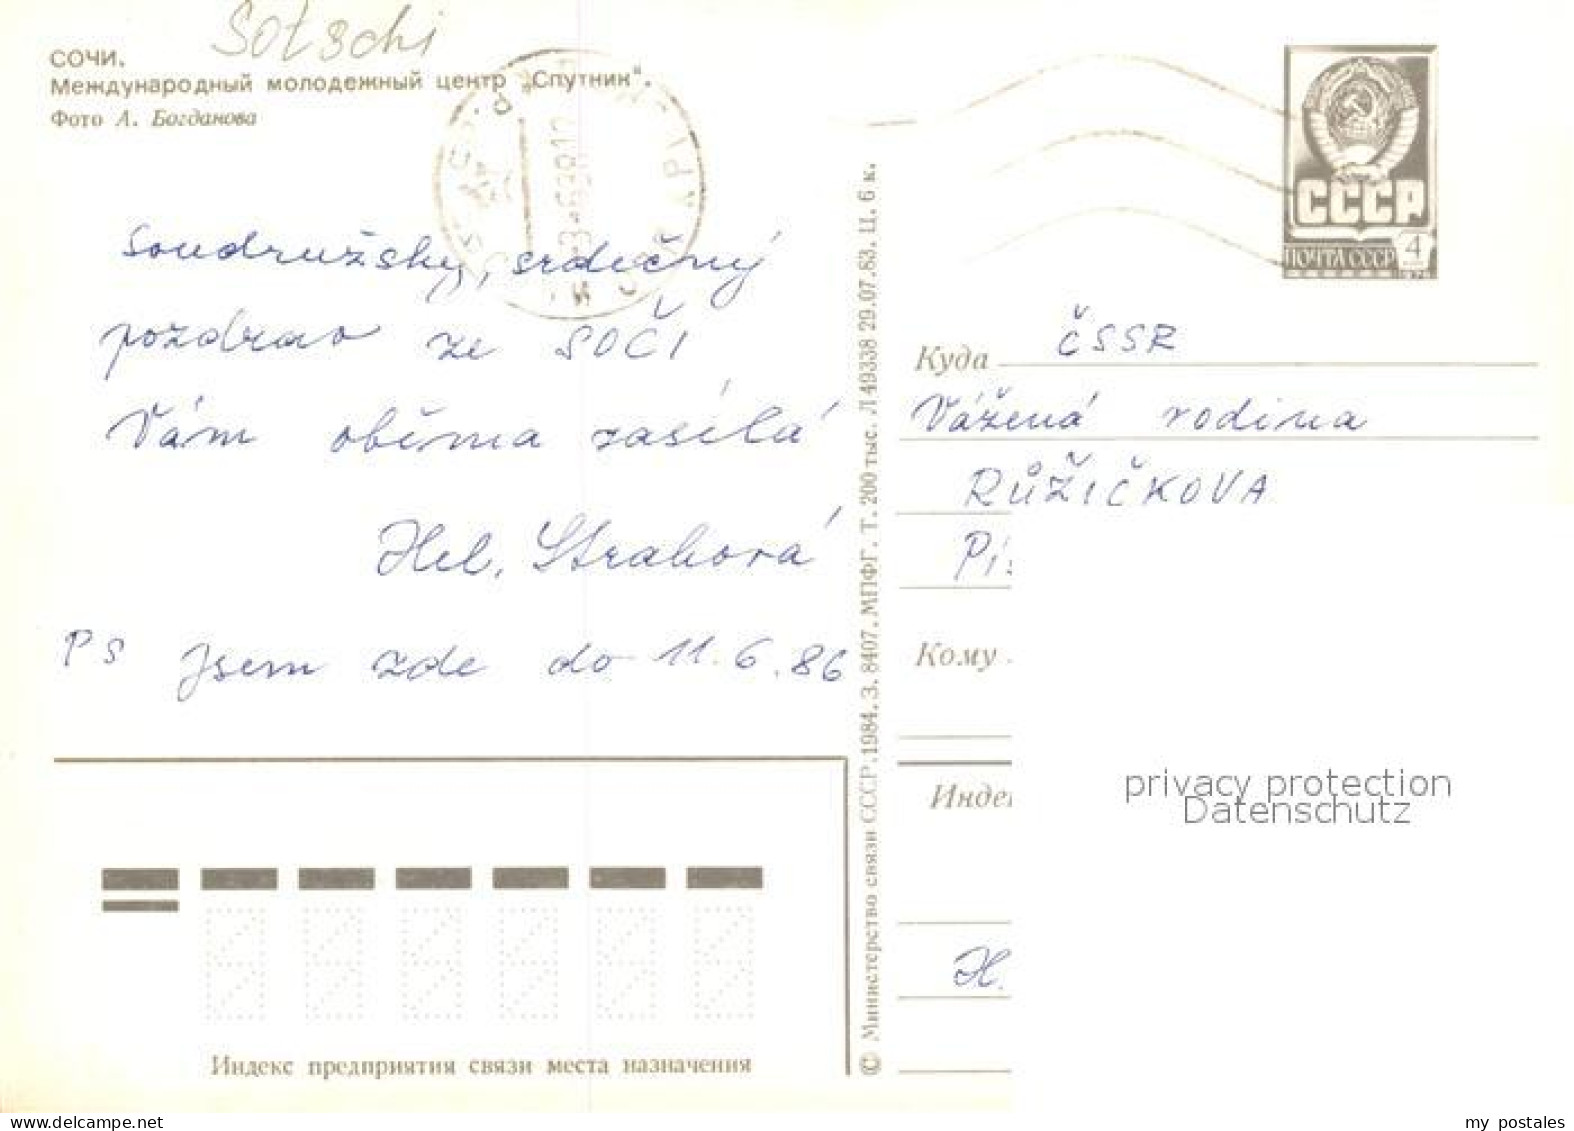 Sotschi
СОЧИ.
Международный молодежный центр „Спутник“.
Фото А. Богданова
Soudružský, srdečný
pozdrav ze SOČI
Vám oběma zasílá
Hel. Strahová
PS jsem zde do 11.6.86
Индекс предприятия связи места назначения
© Министерство связи СССР. 1984. З. 8407. МПФГ. Т. 200 тыс. Л 49338 29.07.83. Ц. 6 к.
СССР
ПОЧТА СССР 4
Куда ČSSR
Vážená rodina
RŮŽIČKOVA
Кому
H.
privacy protection
Datenschutz
my postales